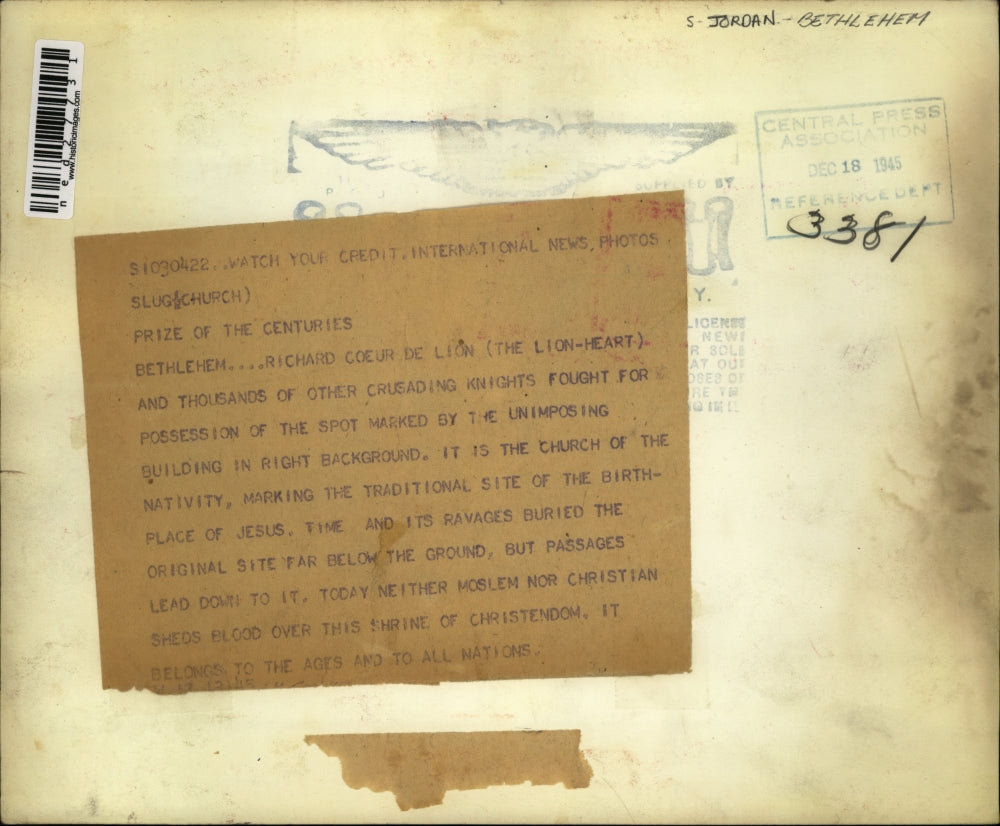 S-JORDAN-BETHLEHEM
ned27731
www.historicimages.com
CENTRAL PRESS
ASSOCIATION
DEC 18 1945
REFERENCE DEPT
3381
SUPPLIED BY
S1030422..WATCH YOUR CREDIT.INTERNATIONAL NEWS PHOTOS
SLUG(CHURCH)
PRIZE OF THE CENTURIES
BETHLEHEM....RICHARD COEUR DE LION (THE LION-HEART)
AND THOUSANDS OF OTHER CRUSADING KNIGHTS FOUGHT FOR
POSSESSION OF THE SPOT MARKED BY THE UNIMPOSING
BUILDING IN RIGHT BACKGROUND. IT IS THE CHURCH OF THE
NATIVITY, MARKING THE TRADITIONAL SITE OF THE BIRTH-
PLACE OF JESUS. TIME AND ITS RAVAGES BURIED THE
ORIGINAL SITE FAR BELOW THE GROUND, BUT PASSAGES
LEAD DOWN TO IT. TODAY NEITHER MOSLEM NOR CHRISTIAN
SHEDS BLOOD OVER THIS SHRINE OF CHRISTENDOM. IT
BELONGS TO THE AGES AND TO ALL NATIONS.
Y.
LICENSE
NEWS